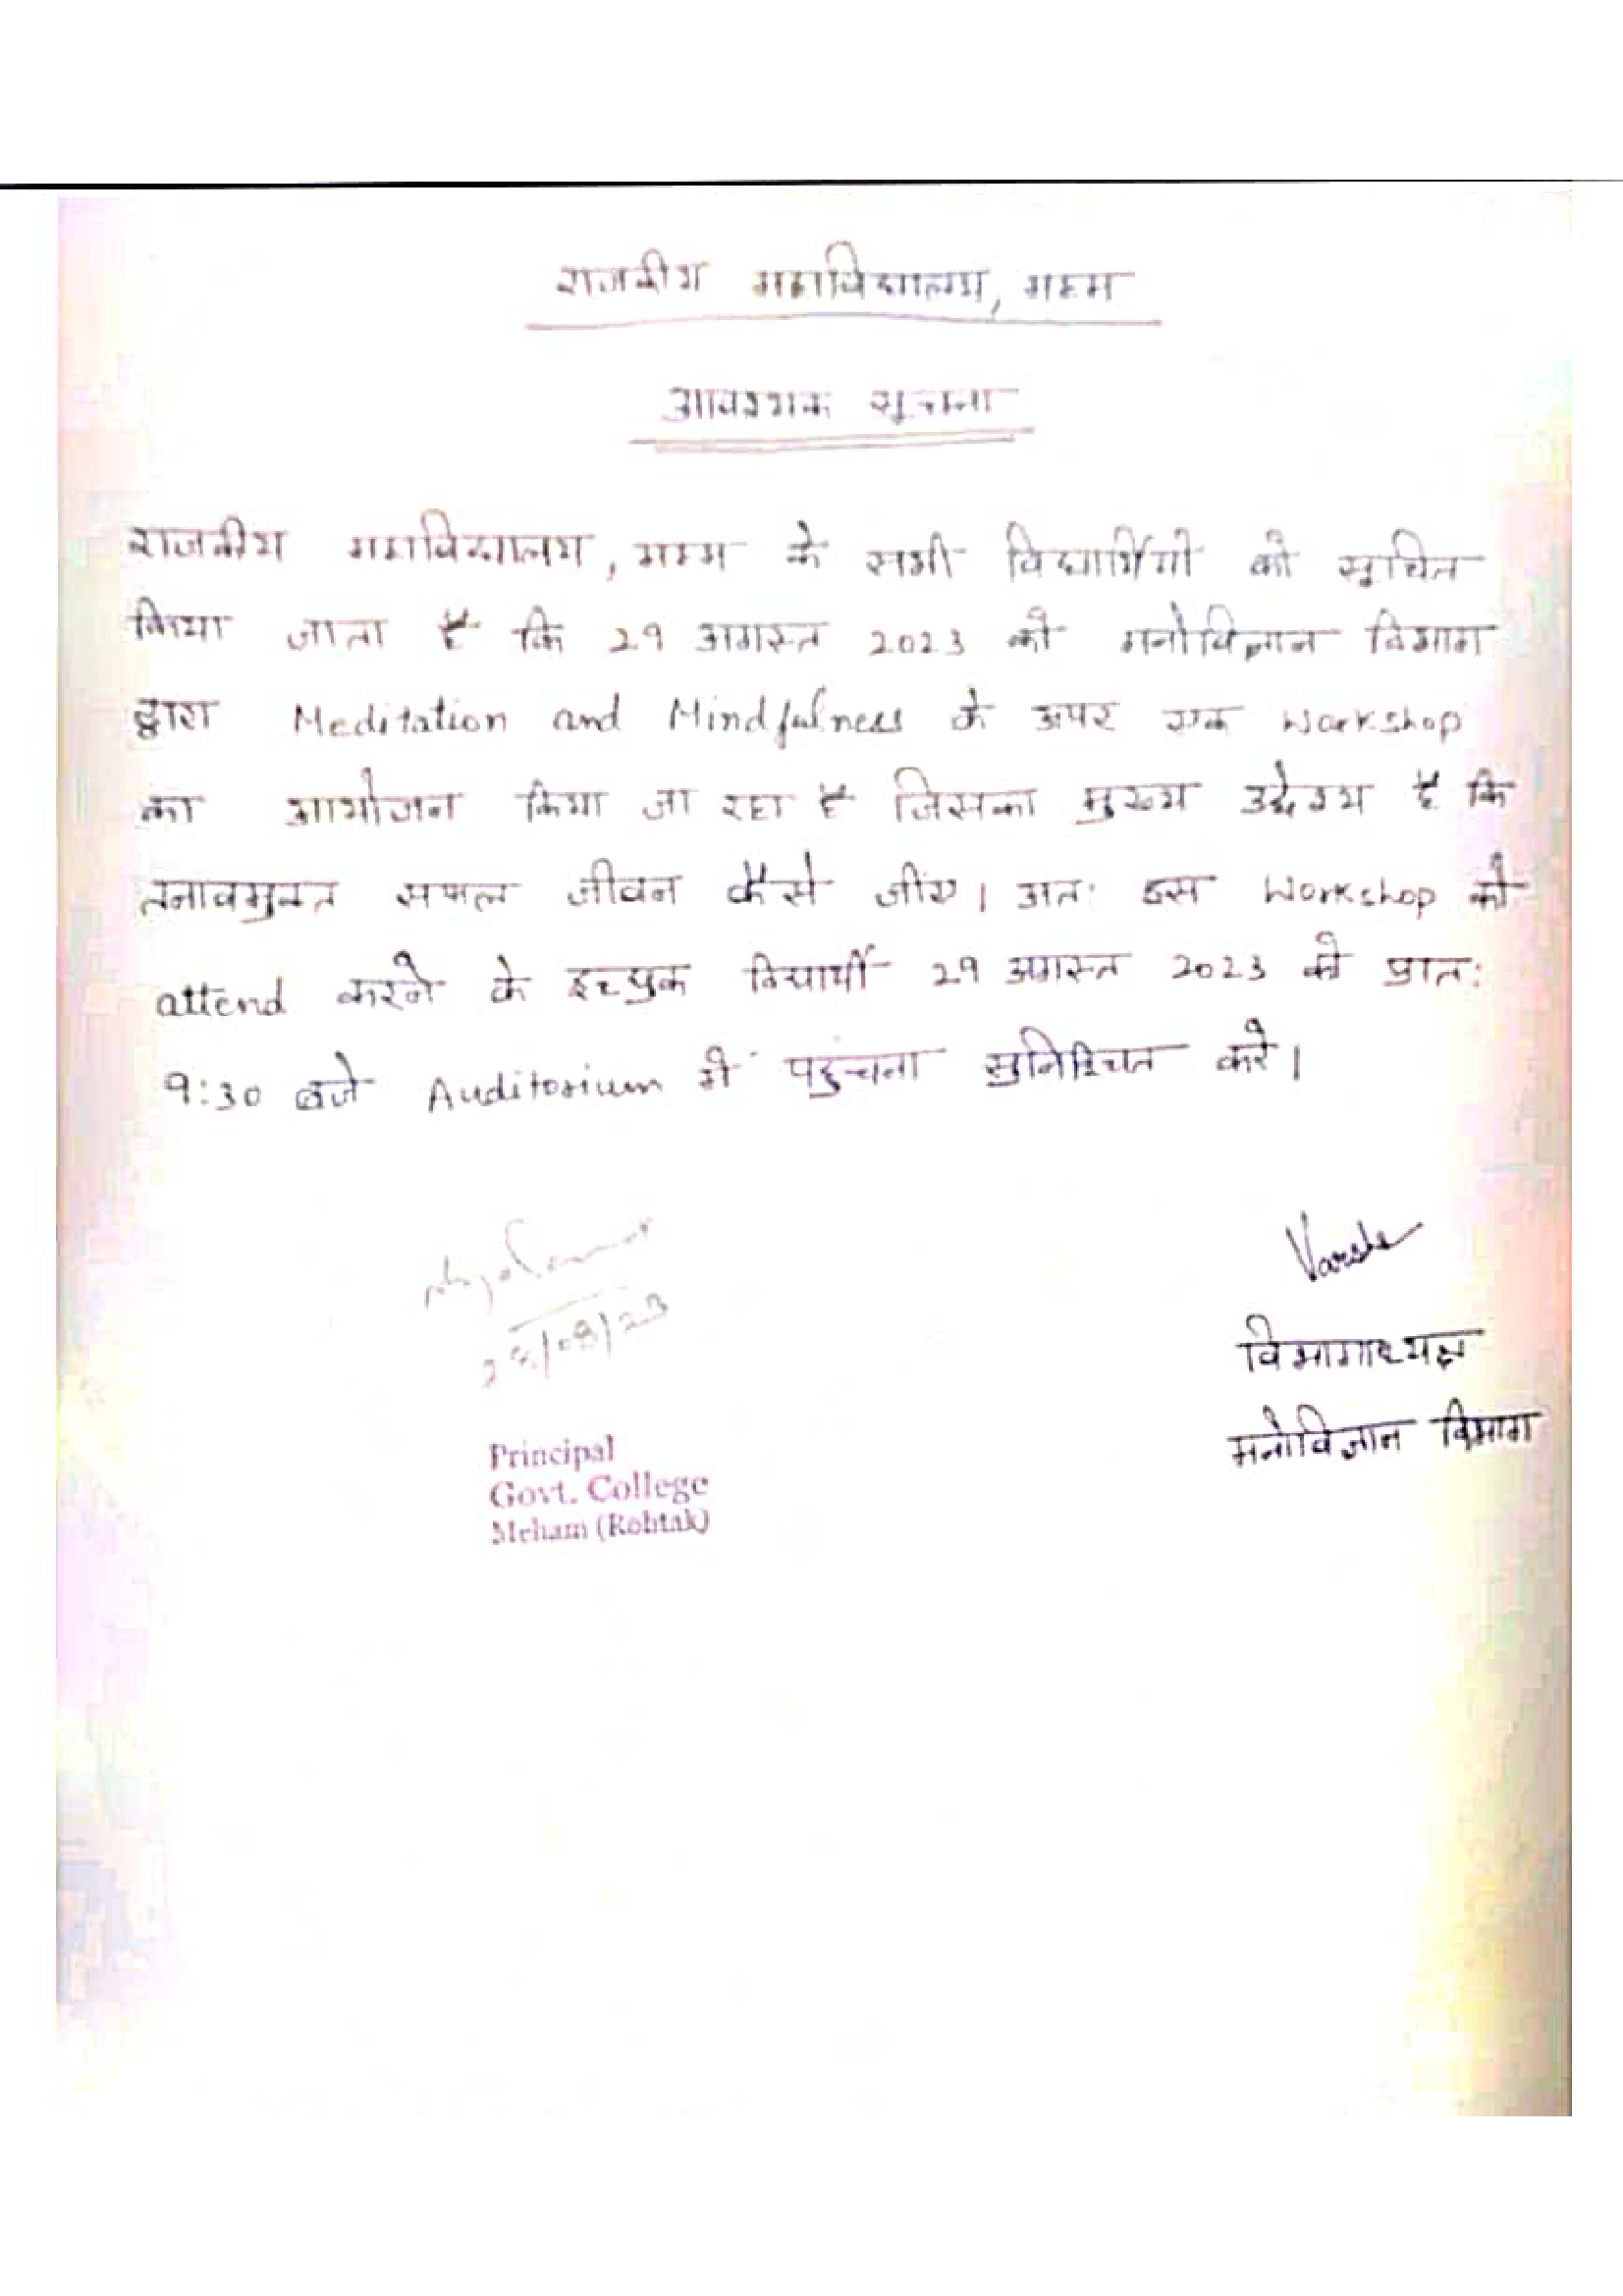 राजकीय महाविद्यालय, महम
आवश्यक सूचना
राजकीय महाविद्यालय, महम के सभी विद्यार्थियों को सूचित
किया जाता है कि 29 अगस्त 2023 को मनोविज्ञान विभाग
द्वारा Meditation and Mindfulness के ऊपर एक Workshop
का आयोजन किया जा रहा है जिसका मुख्य उद्देश्य है कि
तनावमुक्त सफल जीवन कैसे जीए। अतः इस Workshop को
attend करने के इच्छुक विद्यार्थी 29 अगस्त 2023 को प्रातः
9:30 बजे Auditorium में पहुंचना सुनिश्चित करे।
Varsha
विभागाध्यक्ष
मनोविज्ञान विभाग
Principal
Govt. College
Meham (Rohtak)